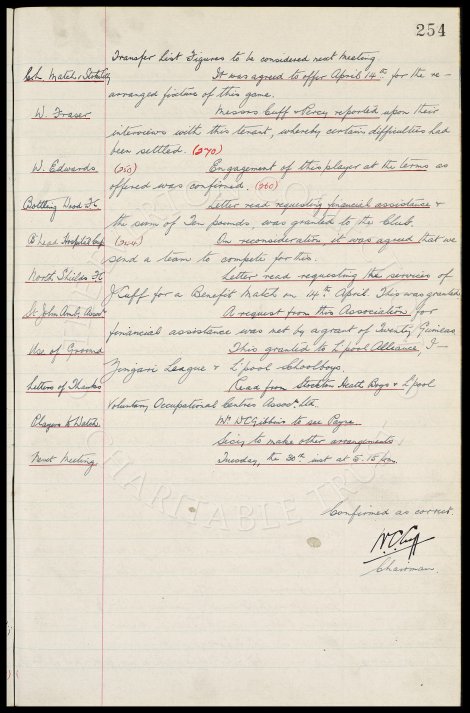 254
Transfer List Figures to be considered next meeting
C.L. Match v It was agreed to offer April 14th for the re-
arranged fixture of this game.
W. Fraser Messrs Cuff & Percy reported upon their
interviews with this tenant, whereby certain difficulties had
been settled. (270)
W. Edwards (250) Engagement of this player at the terms as
offered was confirmed. (260)
F.C. Letter read requesting financial assistance &
the sum of Ten pounds, was granted to the Club.
B'head Hospital Cup (244) On reconsideration it was agreed that we
send a team to compete for this.
North Shields F.C. Letter read requesting the services of
J Caff for a Benefit Match on 14th April. This was granted
St John Amb. Assocn A request from this Association for
financial assistance was met by a grant of Twenty Guineas
Use of Ground This granted to L'pool Alliance, I-
Zingari League & L'pool Schoolboys
Letters of Thanks Read from Stockton Heath Boys & L'pool
Voluntary Occupational Centres Assocn. Ltd.
Players to Watch Mr W C Gibbins to see Payne
Secy to make other arrangements
Next Meeting Tuesday, the 30th inst at 5.15 p.m.
Confirmed as correct.
W.C. Cuff
Chairman.
CHARITABLE TRUST